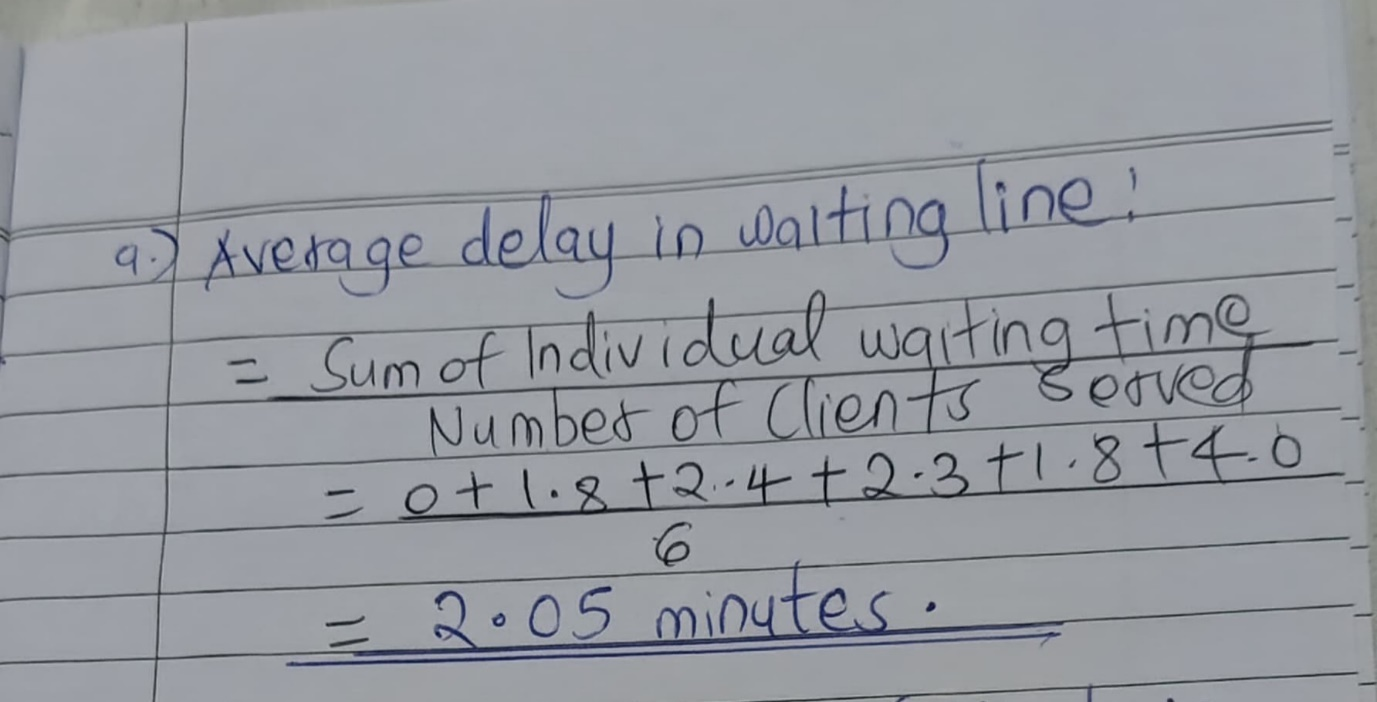 a.) Average delay in waiting line:
= Sum of Individual waiting time
Number of Clients served
= 0 + 1.8 + 2.4 + 2.3 + 1.8 + 4.0
6
= 2.05 minutes.